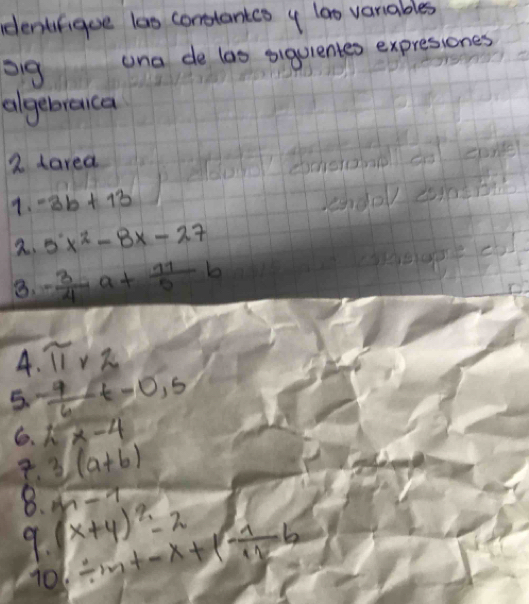 identifique las constantes y las variables
sig una de las siguientes expresiones
algebraica
2 tarea
1. -3b + 13
2. 5x² - 8x - 27
3. -3/4 a + 11/5 b
4. π r 2
5. - t - 0,5
6. 2x - 4
7. 3 (a+b)
8. m - 1
9. (x+y)² - 2
10. ÷m + - x + b